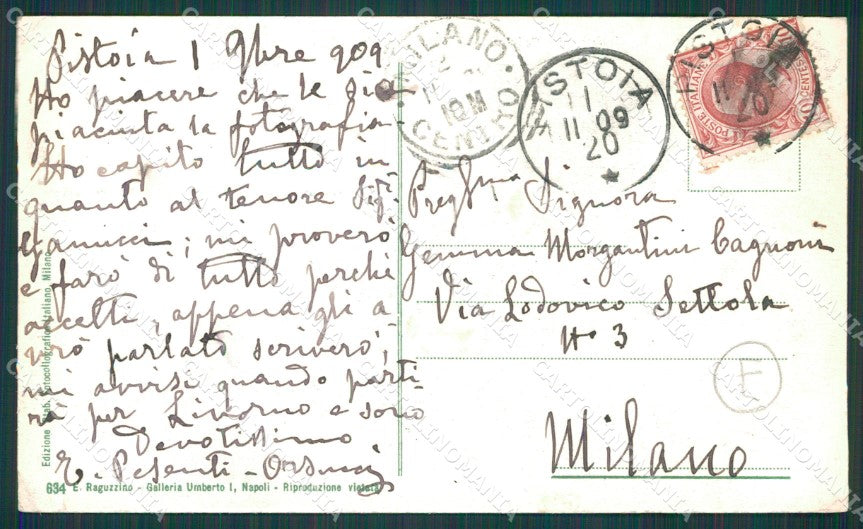 Pistoia 1 9bre 909
Ho piacere che le sia
piaciuta la fotografia-
Ho capito tutto in
quanto al tenore Sig.
Vanucci; mi proverò
e farò di tutto perchè
accetti, appena gli a
vrò parlato scriverò;
mi avvisi quando parti-
rà per Livorno e sono
Devotissimo
E. Pesenti-
634 E. Raguzzino - Galleria Umberto I, Napoli - Riproduzione vietata
Edizione Stab. Fotocollografico Italiano Milano
MILANO
10M
CENTRO
PISTOIA
11
11 09
20
PISTOIA
11
20
POSTE ITALIANE
Pregma Signora
Gemma Morgantini Cagnoni
Via Lodovico Settola
No 3
Milano
F
CARTOLINOMANIA